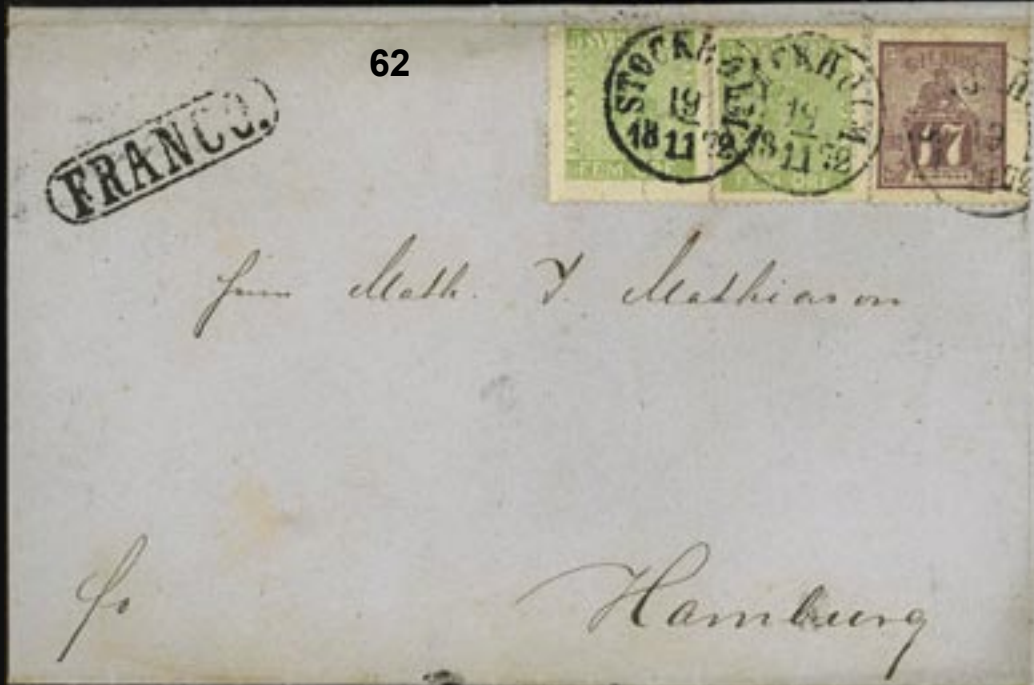 62
FRANCO.
STOCKHOLM
19
18 11 72
STOCKHOLM
19
18 11 72
FEM
17
Herrn Math. J. Mathiason
fr Hamburg